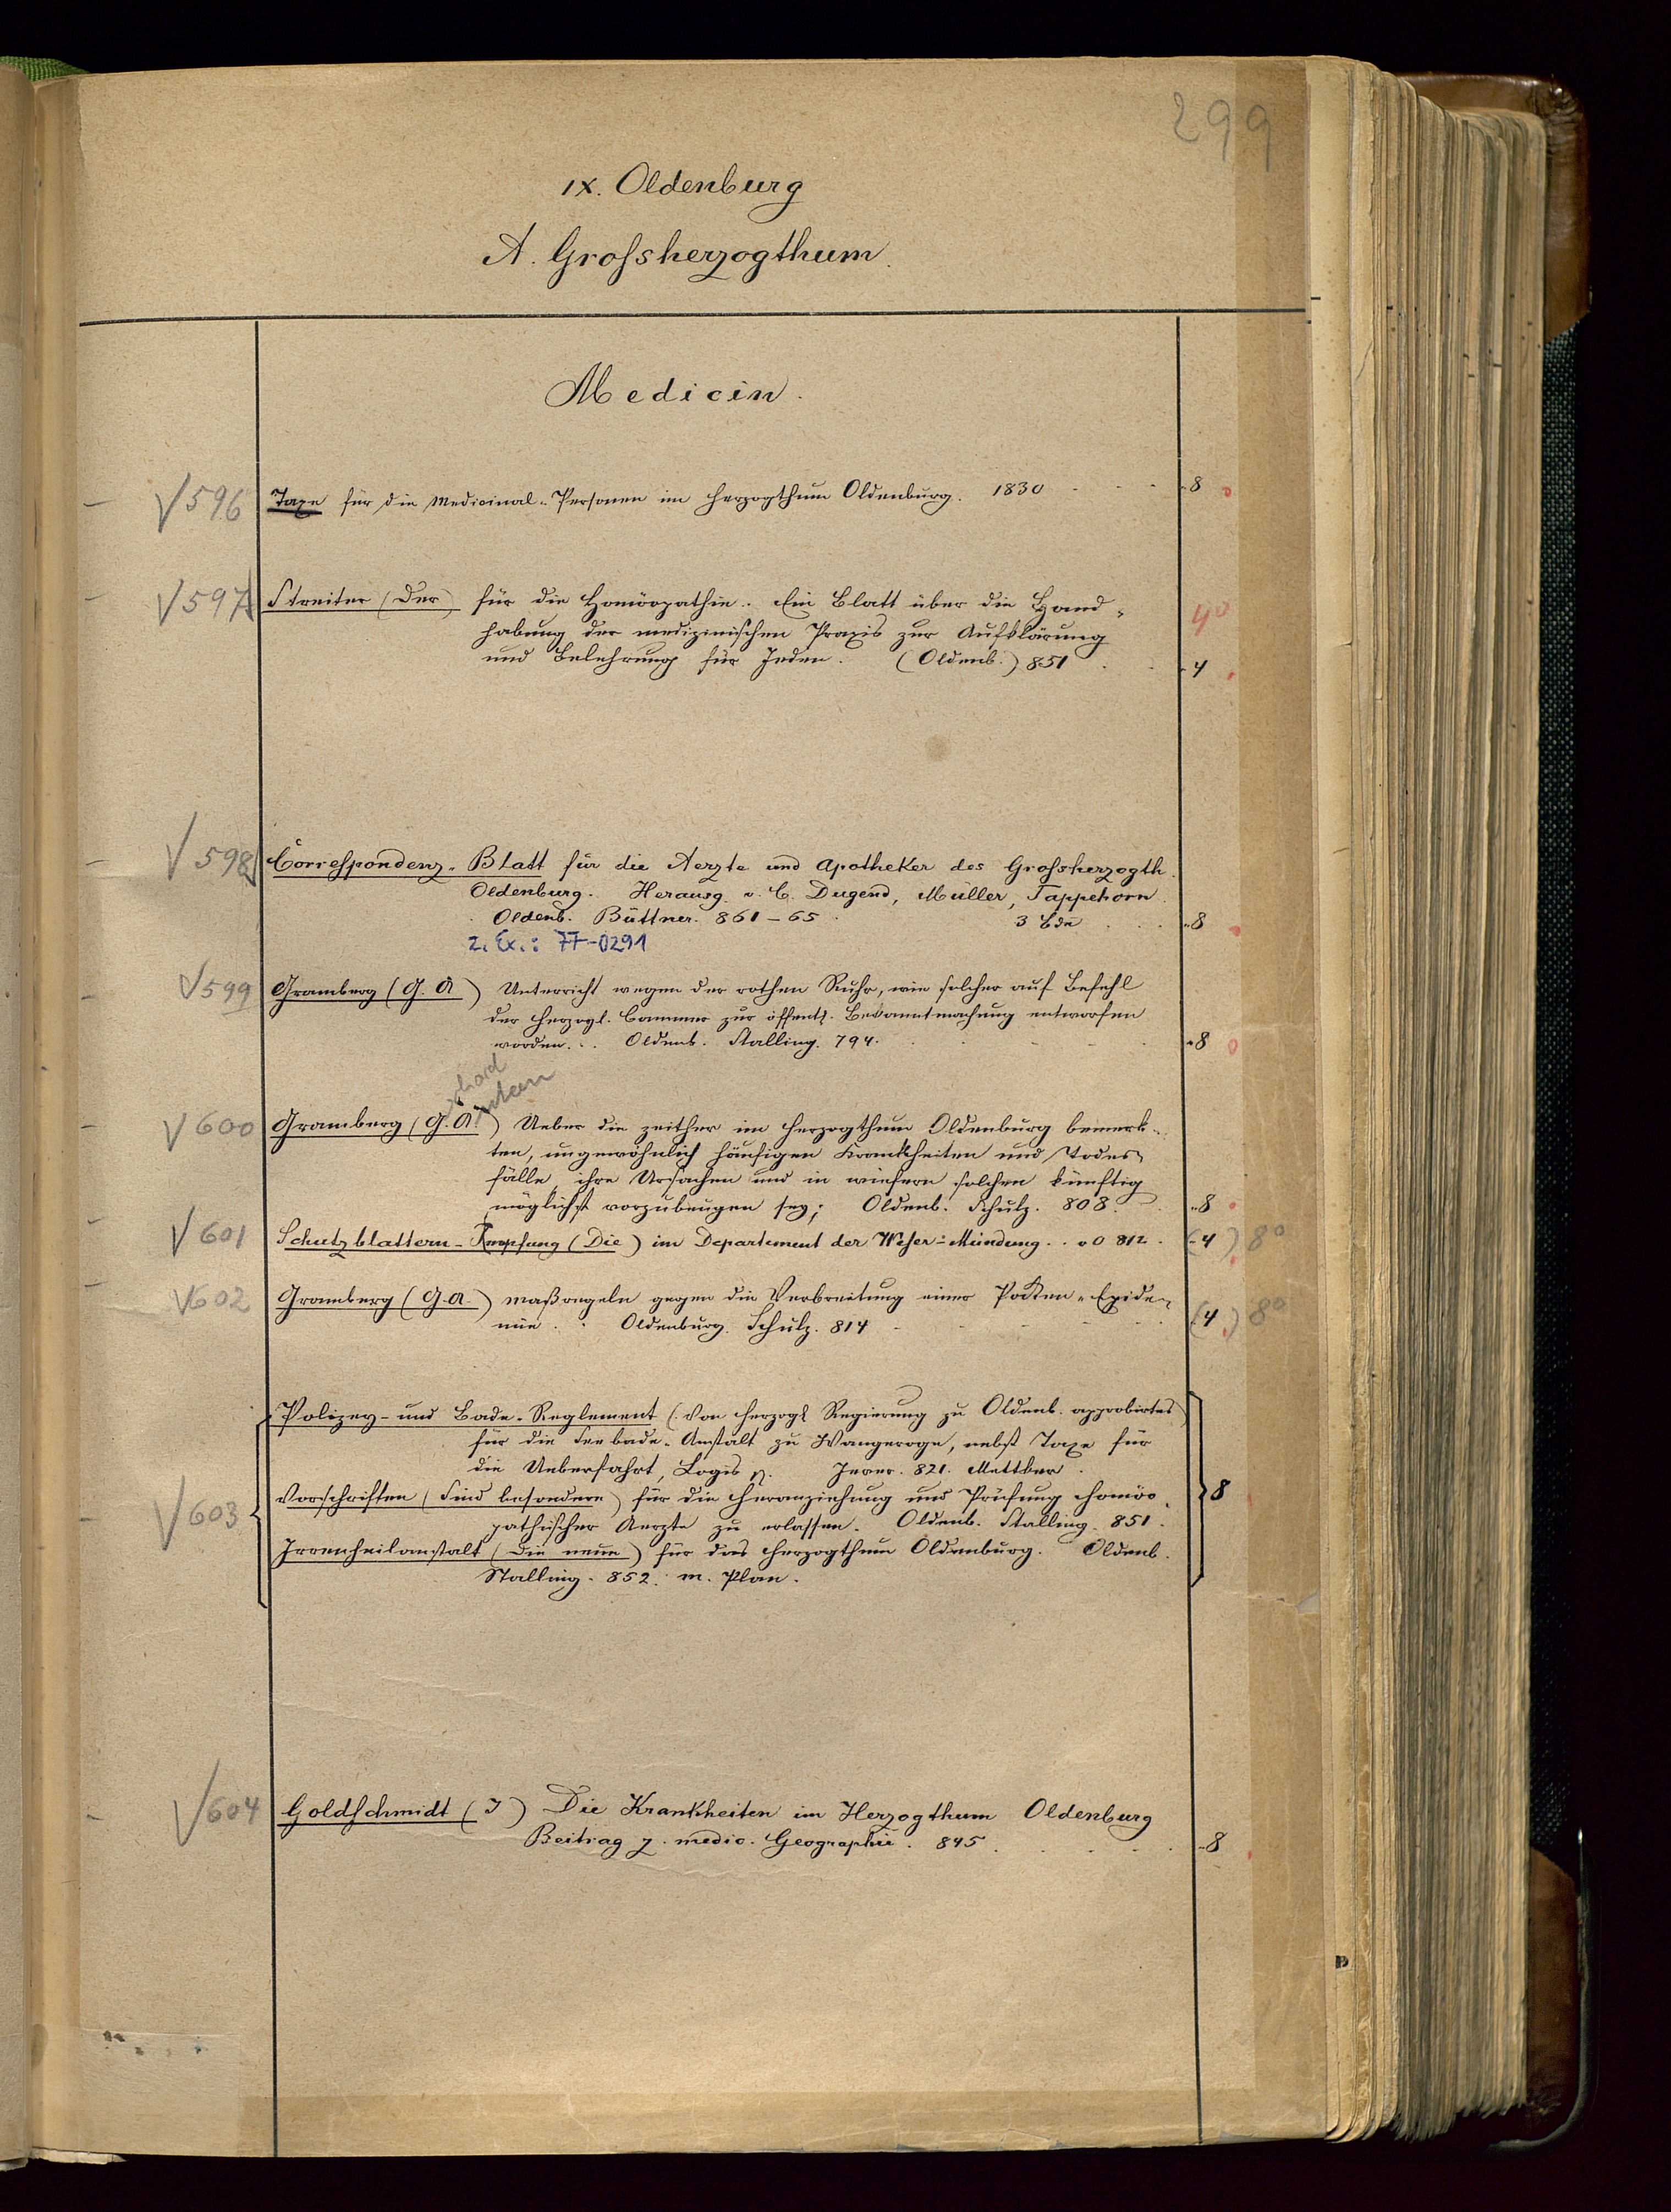 299
IX. Oldenburg
A. Grossherzogthum.
Medicin.
√596 Taxe für die Medicinal-Personen im Herzogthum Oldenburg. 1830 8
√597 Streiter (Der) für die Homöopathie. Ein Blatt über die Hand-
habung der medizinischen Praxis zur Aufklärung 4°
und Belehrung für Jeden. (Oldenb.) 851 4
√598 Correspondenz-Blatt für die Aerzte und Apotheker des Grossherzogth.
Oldenburg. Herausg. v. C. Dugend, Müller, Tappehorn.
Oldenb. Büttner. 861-65 3 Bde 8
2. Ex.: 77-0291
√599 Gramberg (G. A) Unterricht wegen der rothen Ruhr, wie solcher auf Befehl
der Herzogl. Cammer zur öffentl. Bekanntmachung entworfen
worden. Oldenb. Stalling. 794. 8
√600 Gramberg (G. A) Ueber die zeither im Herzogthum Oldenburg bemerk-
ten, ungewöhnlich häufigen Krankheiten und Todes-
fälle, ihre Ursachen und in wiefern solchen künftig
möglichst vorzubeugen sey; Oldenb. Schulz. 808. 8
√601 Schutzblattern-Impfung (Die) im Departement der Weser-Mündung. o O 812. (4) 8°
√602 Gramberg (G. A.) Maßregeln gegen die Verbreitung einer Pocken-Epide-
mie. Oldenburg. Schulz. 814 (4) 8°
Polizey- und Bade-Reglement (Von Herzogl Regierung zu Oldenb. approbirtes)
für die Seebade-Anstalt zu Wangeroge, nebst Taxe für
die Ueberfahrt, Logis p. Jever. 821. Mettker.
√603 Vorschriften (Sind besondere) für die Heranziehung und Prüfung homöo- 8
pathischer Aerzte zu erlassen. Oldenb. Stalling. 851.
Irrenheilanstalt (Die neue) für das Herzogthum Oldenburg. Oldenb.
Stalling. 852. m. Plan.
√604 Goldschmidt (J) Die Krankheiten im Herzogthum Oldenburg
Beitrag z. medic. Geographie. 845 8